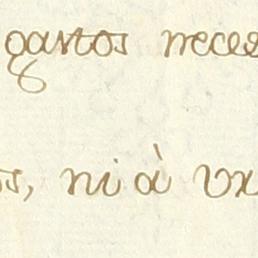 gastos neces
os, ni à vr